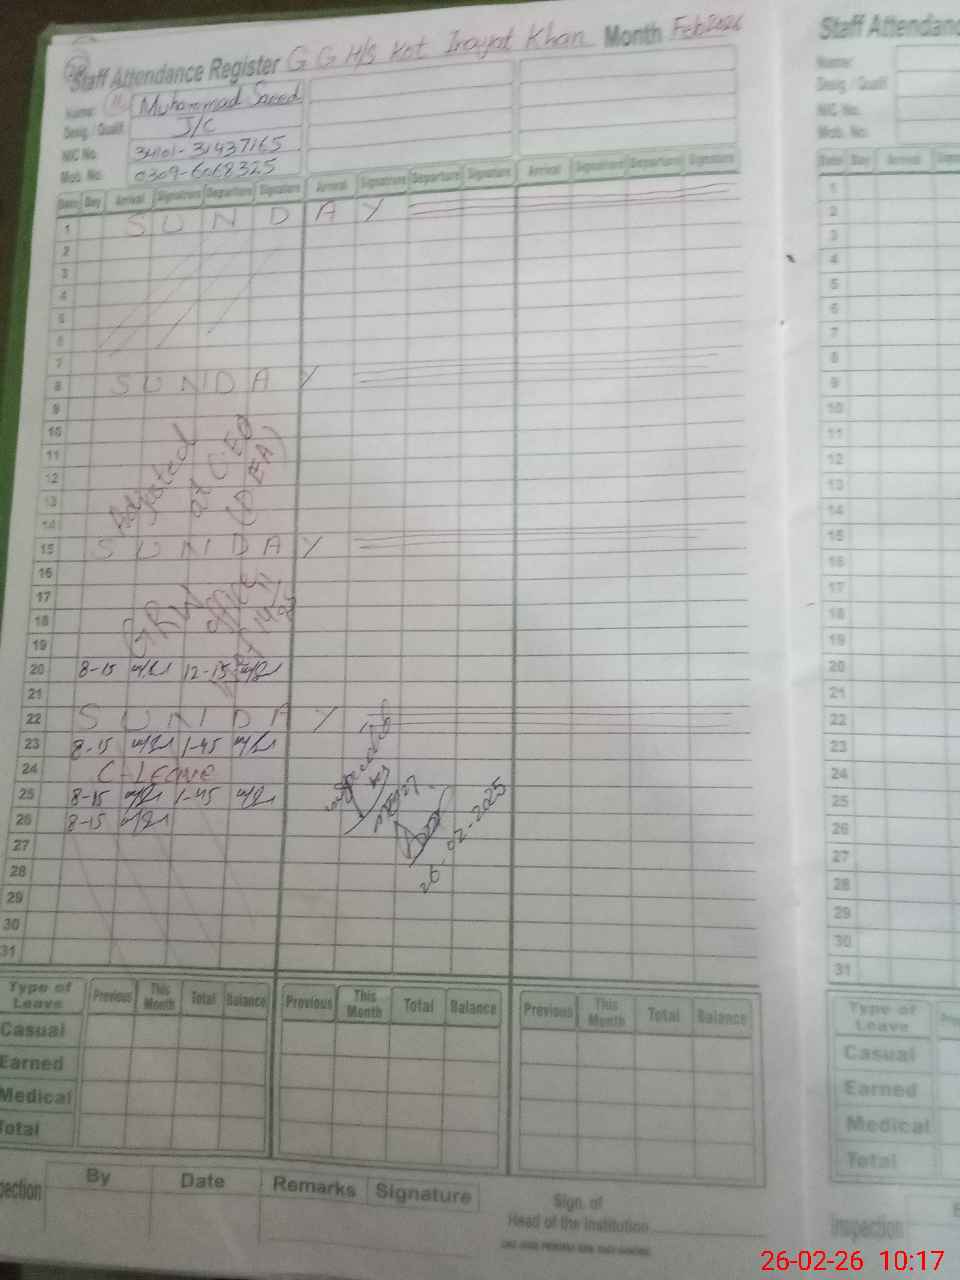 Staff Attendance Register G G H/S Kot Inayat Khan Month Feb 2026
Name: Muhammad Saeed
Desig. / Qualif. J/C
NIC No. 34101-31437165
Mob. No. 0309-6068325
Date Day Arrival Signature Departure Signature Arrival Signature Departure Signature Arrival Signature Departure Signature
1 SUNDAY
2
3
4
5
6
7
8 SUNDAY
9
10
11
12
13
14
Adjusted at C.E.O (DEA)
15 SUNDAY
16
17
18
19
GRW office
20 8-15 12-15
21
22 SUNDAY
23 8-15 1-45
24 C-Leave
25 8-15 1-45
26 8-15
26-02-2025
27
28
29
30
31
Type of Leave Previous This Month Total Balance Previous This Month Total Balance Previous This Month Total Balance
Casual
Earned
Medical
Total
By Date Remarks Signature
Sign. of
Head of the Institution
Staff Attendanc
Name:
Desig. / Qualif.
NIC No.
Mob. No.
Date Day Arrival
1
2
3
4
5
6
7
8
9
10
11
12
13
14
15
16
17
18
19
20
21
22
23
24
25
26
27
28
29
30
31
Type of Leave
Casual
Earned
Medical
Total
Inspection
26-02-26 10:17